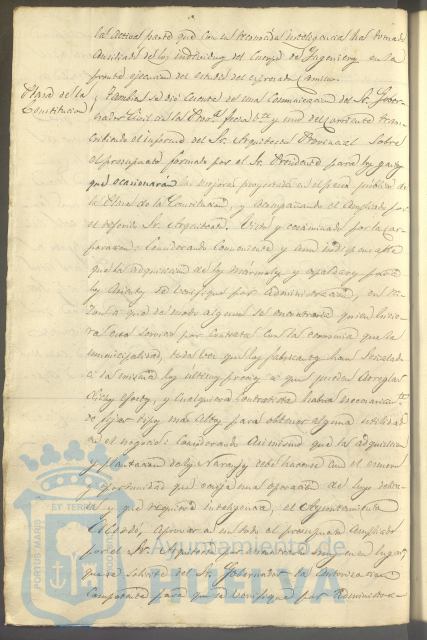 la activa parte que con su reconocida inteligencia ha tomado
Auxiliado de los individuos del Cuerpo de Ingenieros en la
pronta ejecucion del estudio del espresado Camino.
Plaza de la
Constitucion
Tambien se dió cuenta de una Comunicacion del Sr. Gober-
nador Civil de la Prova. fecha y uno del Corriente trans-
cribiendo el informe del Sr. Arquitecto Provincial sobre
el presupuesto formado por el Sr. Presidente para los gastos
que ocasionarán las mejoras proyectadas en el paseo público de
la Plaza de la Constitucion, y acompañando el Ampliado por
el referido Sr. Arquitecto. Visto y examinado por la Cor-
poracion: Considerando Conveniente y aun
que la adquisicion de los marmoles y para
los Asientos se verifique por Administracion, en ra-
zon á que de modo alguno se encontraria quien hicie-
ra este servicio por contrata con la economia que la
municipalidad, toda vez que los fabricantes han señalado
á la misma los últimos precios á que pueden arreglar
dichos efectos, y cualquiera contratista habia necesariamte.
de fijar tipos mas altos para obtener alguna utilidad
en el negocio: Considerando Asimismo que la adquisicion
y plantacion de los Naranjos debe hacerse con el esmero
y oportunidad que exije una operacion de suyo delica-
da y que requiere inteligencia; el Ayuntamiento
Acordó, aprovar en un todo el presupuesto Ampliado
por el Sr. Arquitecto
que se solicite del Sr. Gobernador la Autorizacion
Competente para que se verifique por Administra-
PORTUS MARIS
ET TERRÆ
Ayuntamiento de
HUELVA